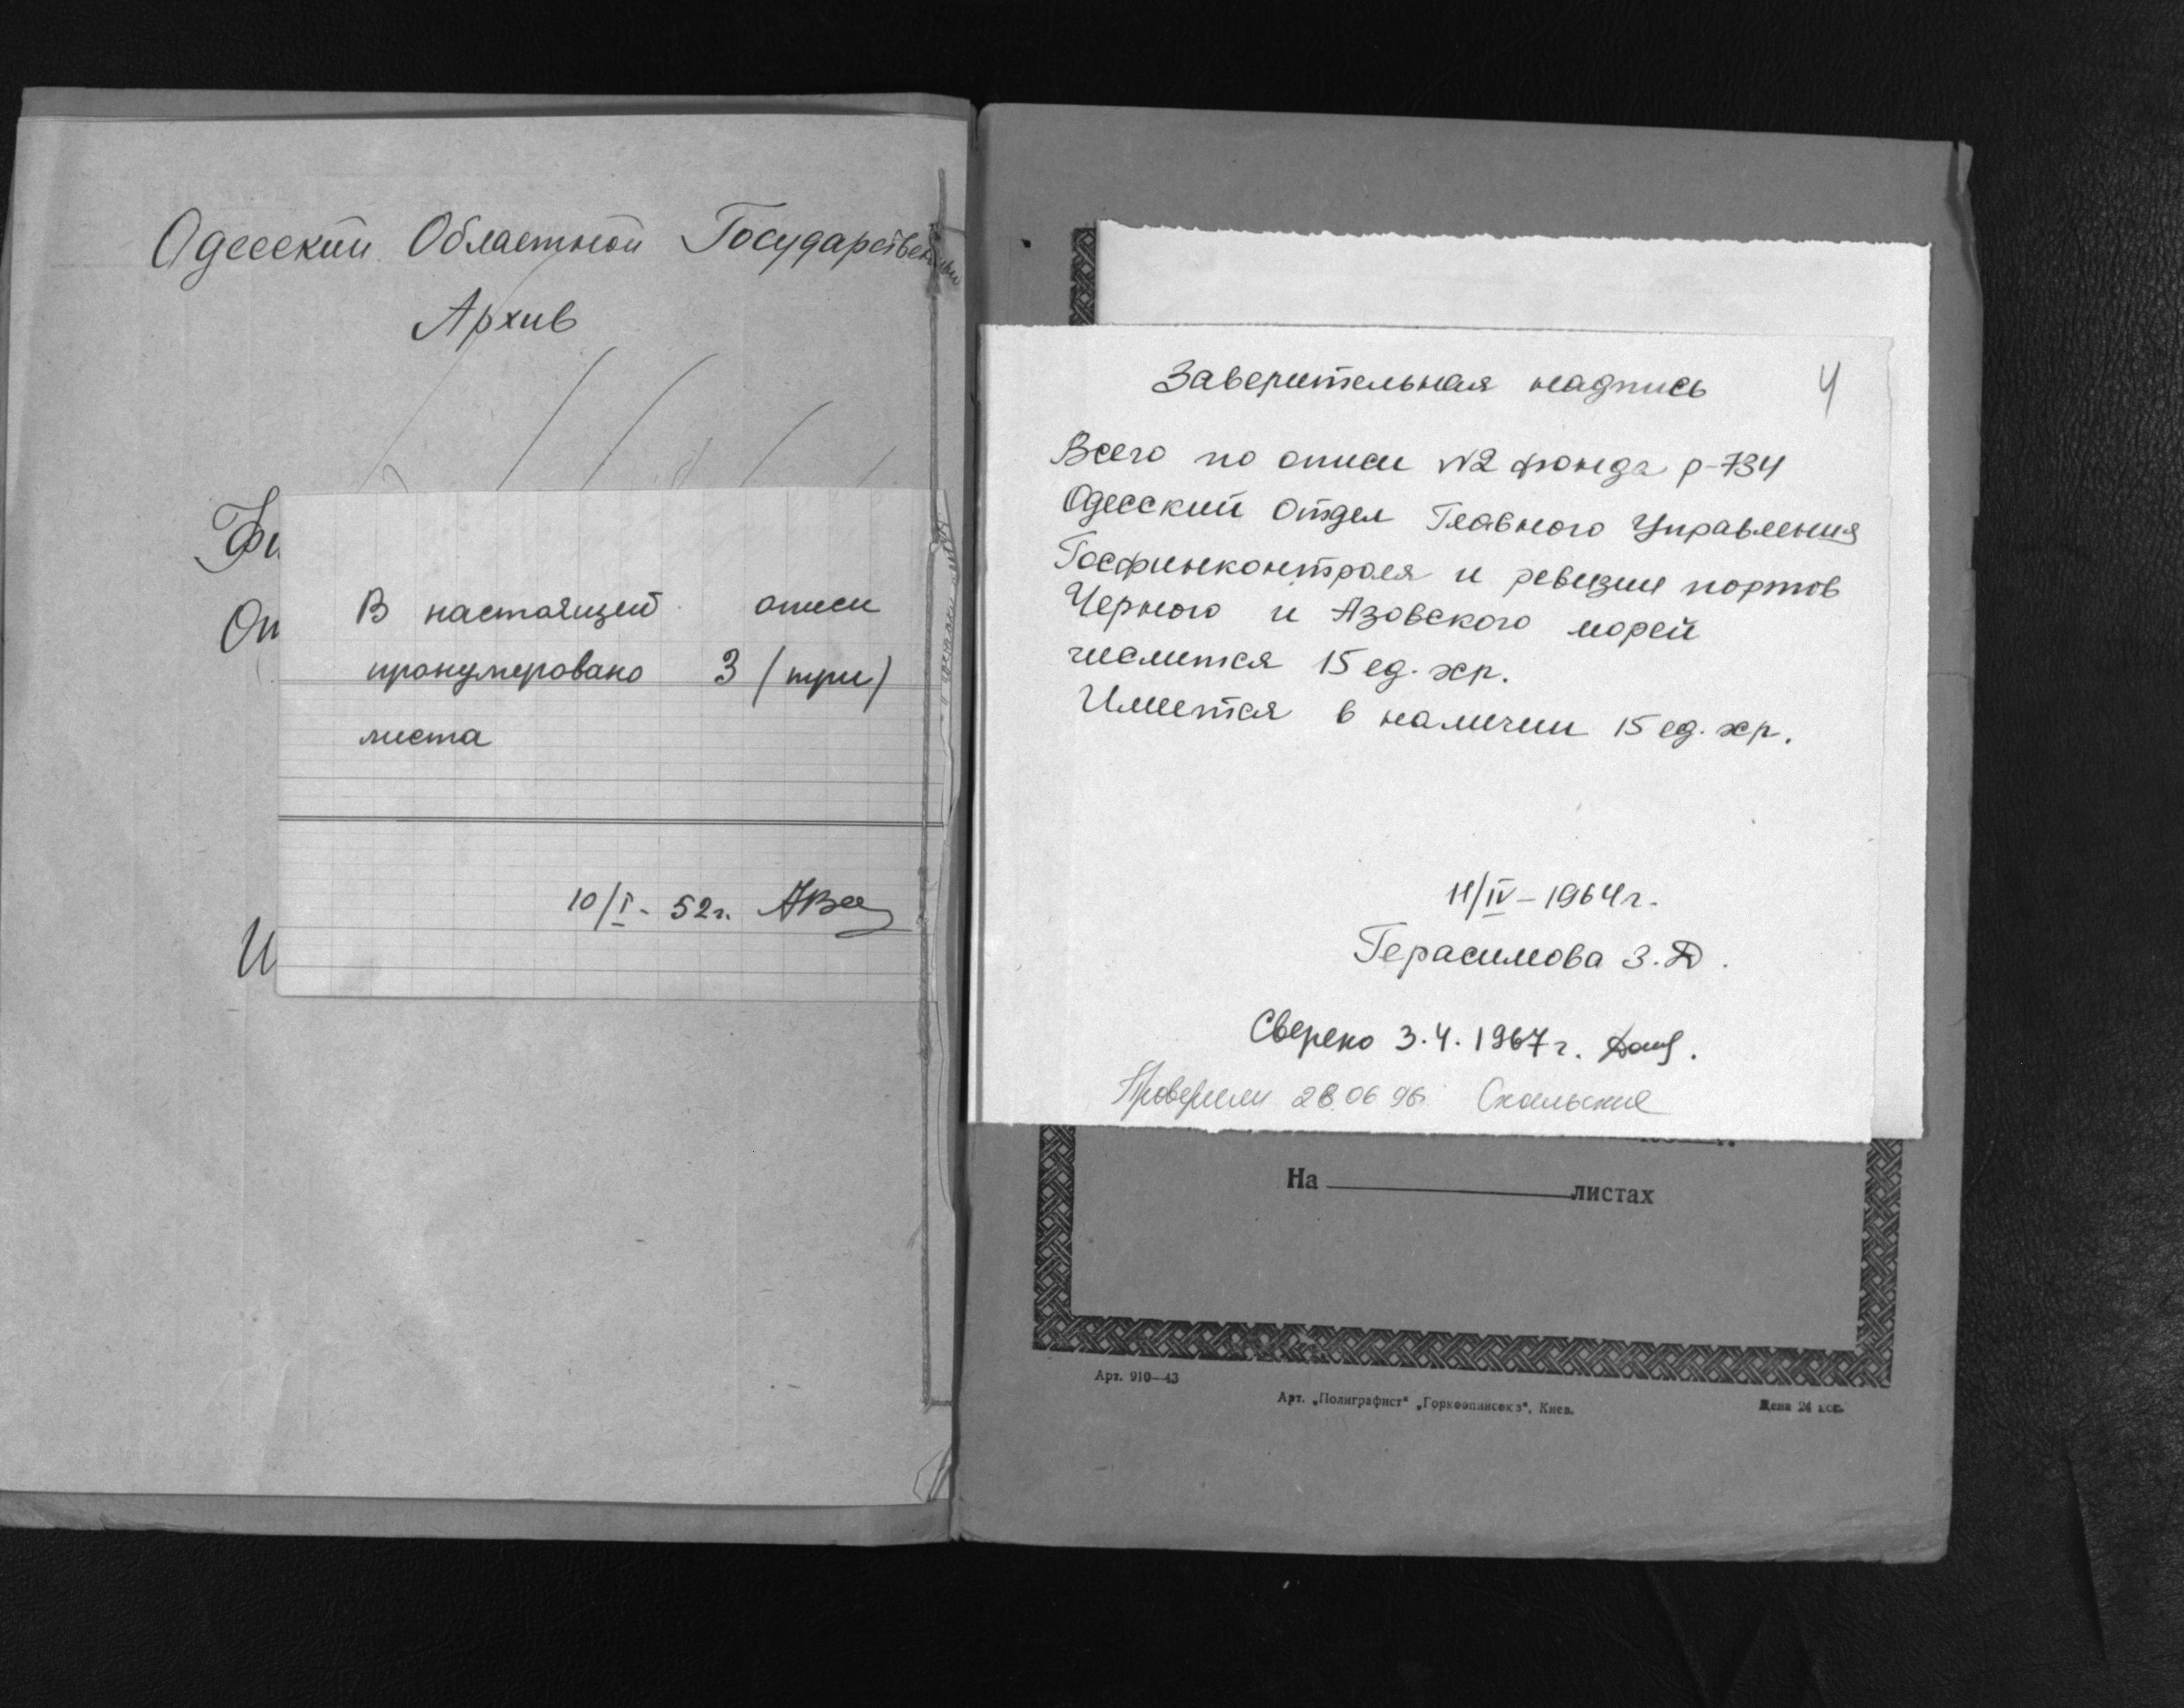 Одесский Областной Государственный
Архив
В настоящей описи
пронумеровано 3 (три)
листа
10/I - 52 г.
4
Заверительная надпись
Всего по описи №2 фонда р-734
Одесский Отдел Главного Управления
Госфинконтроля и ревизии портов
Черного и Азовского морей
числится 15 ед. хр.
Имеется в наличии 15 ед. хр.
11/IV - 1964 г.
Герасимова З.Д.
Сверено 3.4.1967 г.
Проверили 28.06 96.
На листах
Арт. 910—43
Арт. „Полиграфист" „Горкоопинсоюз", Киев.
Цена 24 коп.